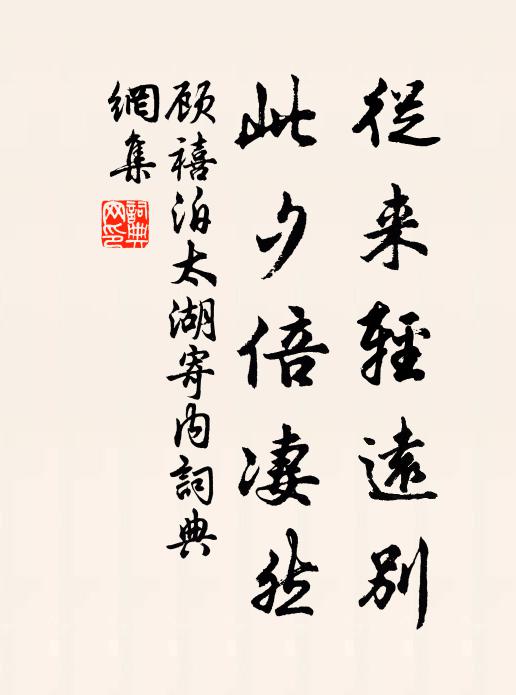 從来輕遠別
此夕倍凄然
顾禧泊太湖寄内詞典
網集
詞典網印